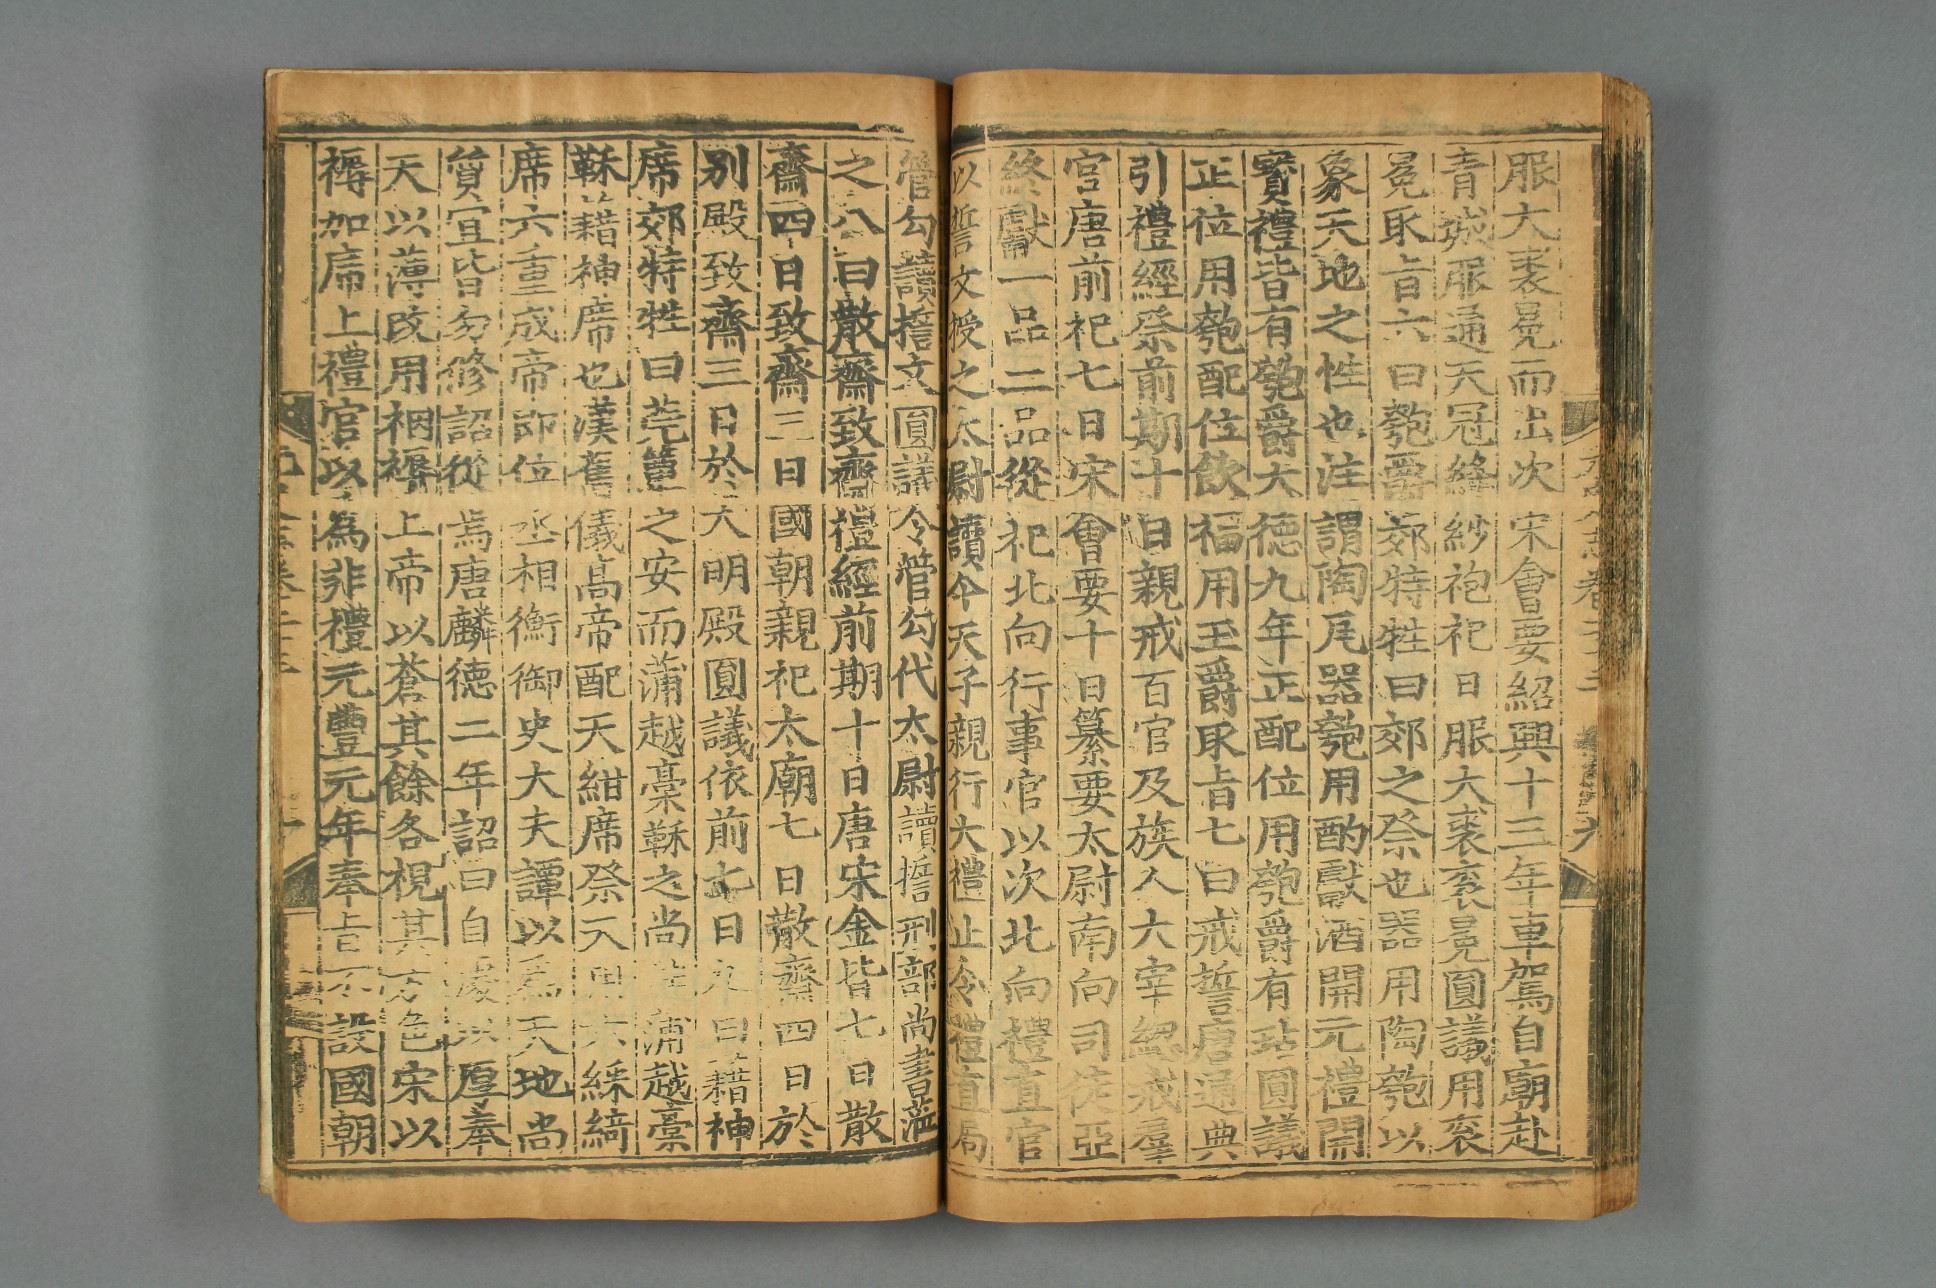 服大裘冕而出次宋會要紹興十三年車駕自廟赴
青城服通天冠絳紗袍祀日服大裘衮冕圓議用衮
冕取旨六曰匏爵郊特牲曰郊之祭也器用陶匏以
象天地之性也注謂陶瓦器匏用酌獻酒開元禮開
寶禮皆有匏爵大德九年正配位用匏爵有坫圓議
正位用匏配位飲福用玉爵取旨七曰戒誓唐通典
引禮經祭前期十日親戒百官及族人大宰緫戒羣
官唐前祀七日宋會要十日纂要太尉南向司徒亞
終獻一品二品從祀北向行事官以次北向禮直官
以誓文授之太尉讀今天子親行大禮止令禮直局
管勾讀誓文圓議令管勾代太尉讀誓刑部尚書蒞
之八曰散齋致齋禮經前期十日唐宋金皆七日散
齋四日致齋三日國朝親祀太廟七日散齋四日於
别殿致齋三日於大明殿圓議依前七日九曰藉神
席郊特牲曰莞簟之安而蒲越藁鞂之尚注蒲越藁
鞂藉神席也漢舊儀高帝配天紺席祭天用六綵綺
席六重成帝即位丞相衡御史大夫譚以爲天地尚
質宜皆勿修詔從焉唐麟德二年詔曰自處以厚奉
天以薄改用裀褥上帝以蒼其餘各視其方色宋以
褥加席上禮官以爲非禮元豐元年奉旨不設國朝